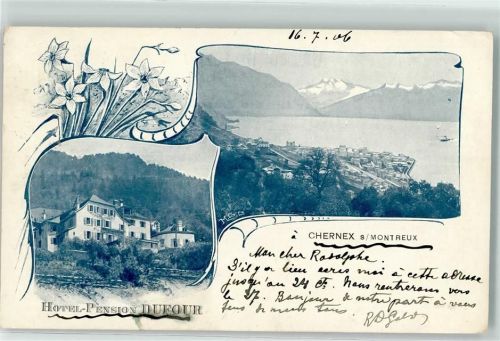 16.7.06
à CHERNEX S/MONTREUX
Mon cher Rodolphe.
S'il y a lieu écris moi à cette adresse
jusqu'au 24 ct. Nous rentrerons vers
le 27. Bonjour de notre part à vous
tous
HOTEL-PENSION DUFOUR